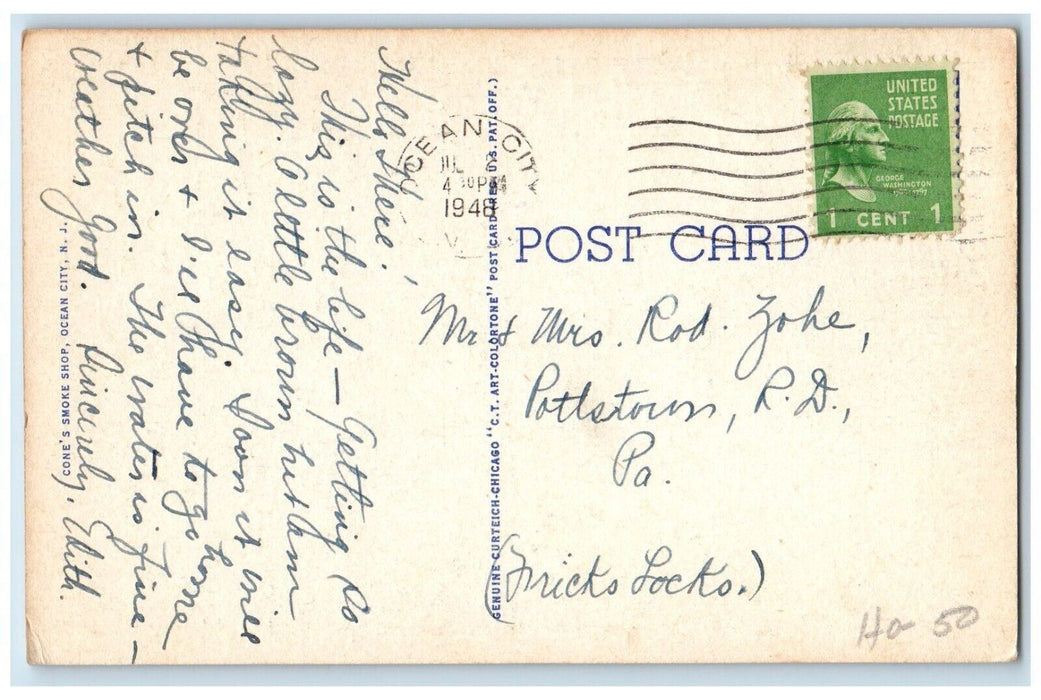 Hello There!
This is the life — Getting so
lazy. A little brown but am
taking it easy. Soon it will
be over & I'll have to go home
& pitch in. The water is fine —
weather good. Sincerely, Edith.
CONE'S SMOKE SHOP, OCEAN CITY, N. J.
GENUINE CURTEICH-CHICAGO "C.T. ART-COLORTONE" POST CARD (REG. U.S. PAT. OFF.)
OCEAN CITY
JUL
4 30 PM
1948
UNITED
STATES
POSTAGE
GEORGE
WASHINGTON
1 CENT 1
POST CARD
Mr & Mrs. Rod. Zohe,
Pottstown, R.D.,
Pa.
(Fricks Locks.)
50